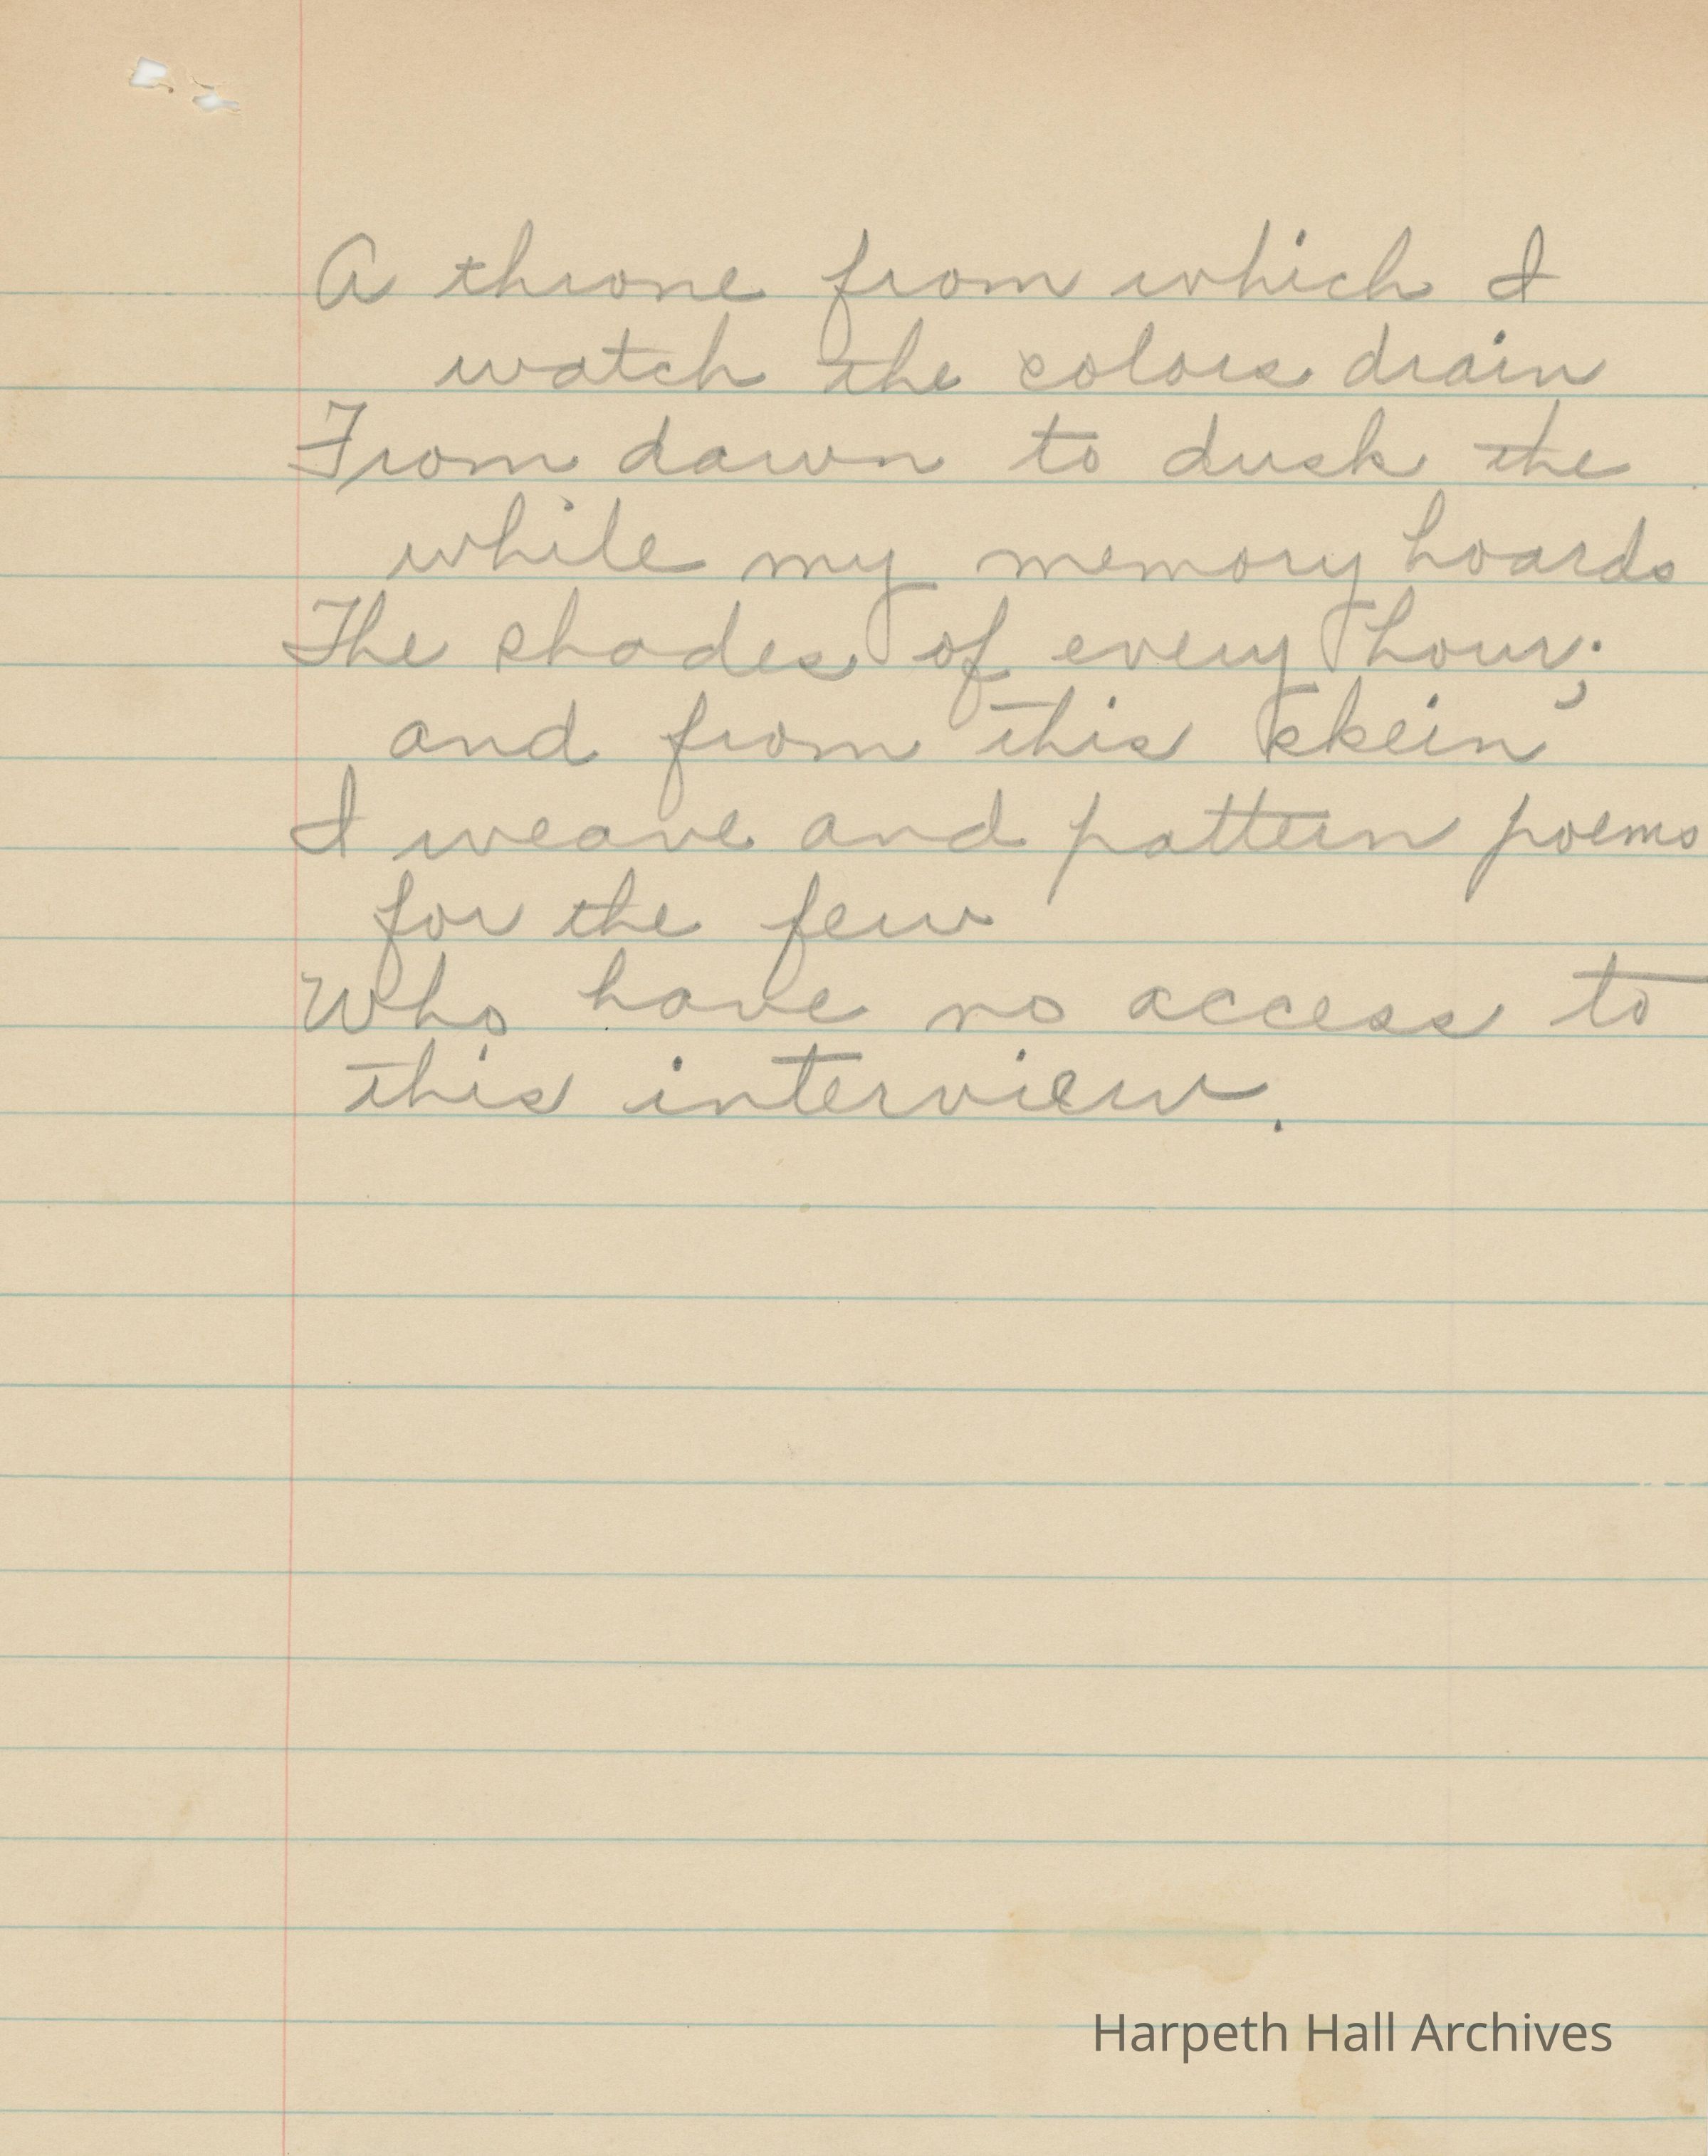 A throne from which I
watch the colors drain
From dawn to dusk the
while my memory hoards
The shades of every hour;
and from this skein
I weave and pattern poems
for the few
Who have no access to
this interview.
Harpeth Hall Archives